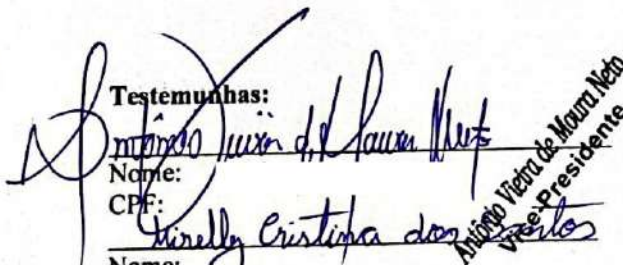 Testemunhas:
Antônio Vieira de Moura Neto
Nome:
CPF:
Mirelly Cristina dos Santos
Nome:
Antônio Vieira de Moura Neto
Vice-Presidente